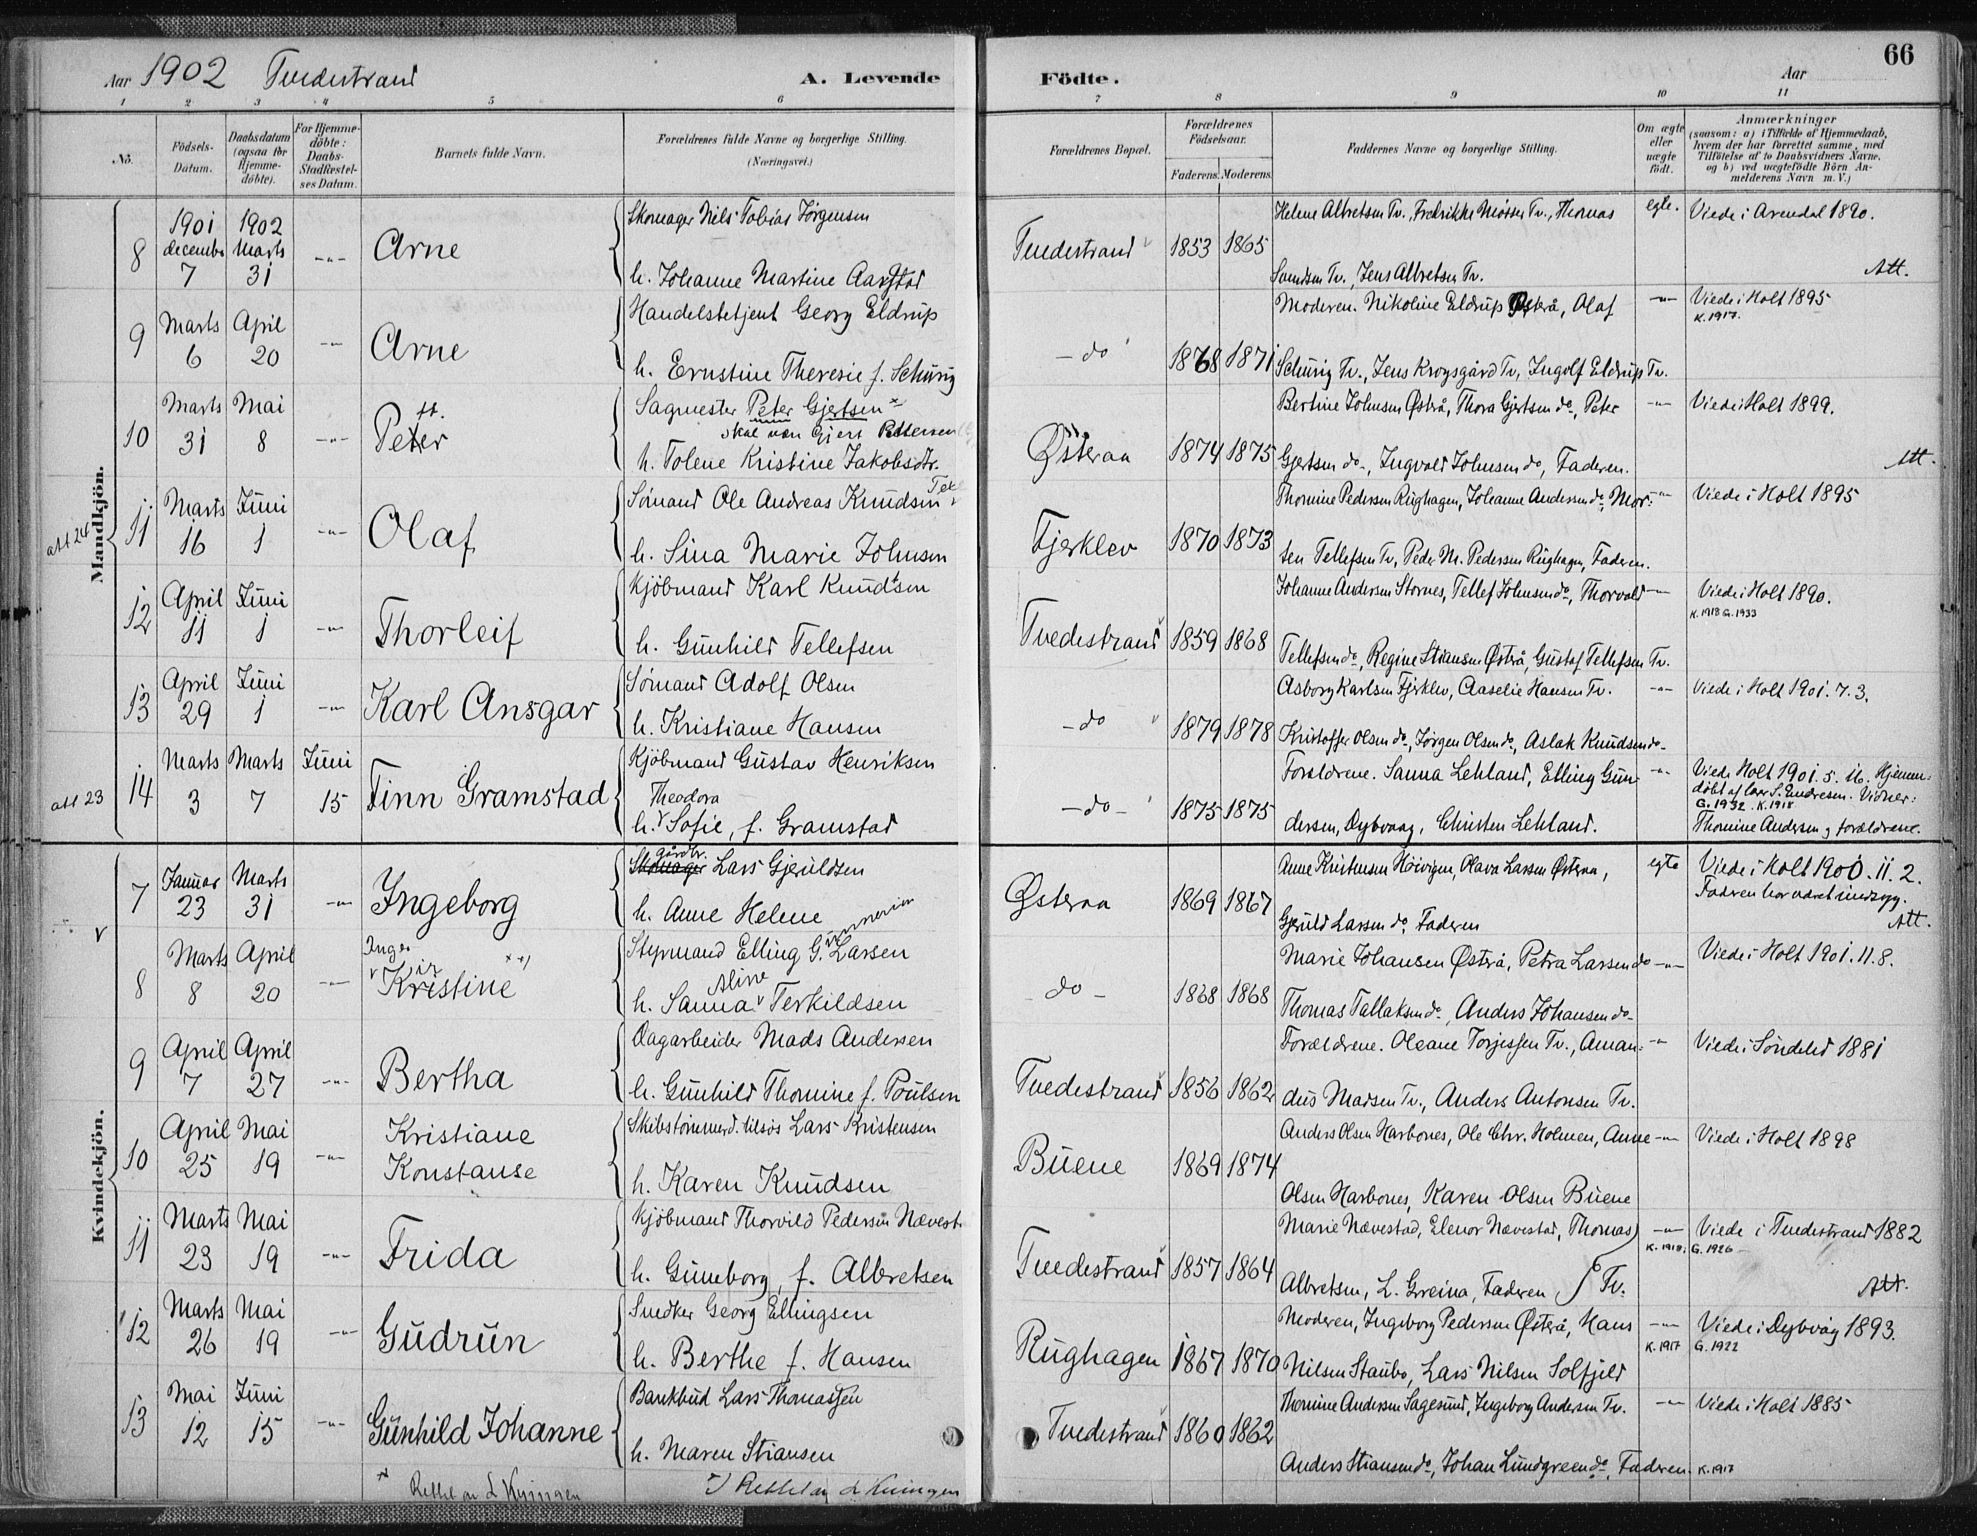 66
Aar 1902 Tvedestrand A. Levende Födte. Aar
1 2 3 4 5 6 7 8 9 10 11
Nö. Födsels-Datum. Daabsdatum (ogsaa for Hjemme-döbte). For Hjemme-döbte: Daabs-Stadfæstel-ses Datum. Barnets fulde Navn. Forældrenes fulde Navne og borgerlige Stilling. (Næringsvei.) Forældrenes Bopæl. Forældrenes Födselsaar. Faderens. Moderens. Faddernes Navne og borgerlige Stilling. Om ægte eller uægte födt. Anmærkninger (saasom: a) i Tilfælde af Hjemmedaab, hvem der har forrettet samme, med Tilföielse af to Daabsvidners Navne, og b) ved uægtefödte Börn Anmelderens Navn m. V.)
Mandkjön.
8 1901 decembr 7 1902 Marts 31 -"- Arne Skomager Nils Tobias Jørgensen Tvedestrand 1853 1865 Helene Albretsen Tv., Fredrikke Mørser Tv., Thomas egte. Viede i Arendal 1890.
h. Johanne Martine Aagstad Svendsen Tv., Jens Albretsen Tv. Att.
9 Marts 6 April 20 -"- Arne Handelsbetjent Georg Eldrup -do- 1868 1871 Moderen. Nikoline Eldrup Østerå, Olaf -"- Viede i Holt 1895
K. 1917.
h. Ernstine Theresie f. Schurig Schurig Tv., Jens Krogsgård Tv, Ingolf Eldrup Tv.
10 Marts 31 Mai 8 -"- Peter Sagmester Peter Gjertsen Østeraa 1874 1875 Bertine Johnsen Østrå, Thora Gjertsen do, Peter -"- Viede i Holt 1899.
skal være Gjert Pettersen
h. Tolene Kristine Jakobsdtr. Gjertsen do, Ingvald Johnsen do, Faderen. Att.
att 24 11 Marts 16 Juni 1 -"- Olaf Sömand Ole Andreas Knudsen Fjerklev 1870 1873 Thomine Pedersen Rughagen, Johanne Andersen do, Mor- -"- Viede i Holt 1895
h. Sina Marie Johnsen ten Tellefsen Tv, Peder M. Pedersen Rughagen, Faderen.
12 April 11 Juni 1 -"- Thorleif Kjöbmand Karl Knudsen Tvedestrand 1859 1868 Johanne Andersen Stornes, Tellef Johnsen do, Thorvald -"- Viede i Holt 1890.
K. 1918 G. 1933
h. Gunhild Tellefsen Tellefsen do, Regine Stiansen Østrå, Gustaf Tellefsen Tv.
13 April 29 Juni 1 -"- Karl Ansgar Sömand Adolf Olsen -do 1879 1878 Asborg Karlsen Fjerklev, Aaselie Hansen Tv. -"- Viede i Holt 1901. 7. 3.
h. Kristiane Hansen Kristoffer Olsen do, Jørgen Olsen do, Aslak Knudsen do-
att 23 14 Marts 3 Marts 7 Juni 15 Finn Gramstad Kjöbmand Gustav Henriksen -do- 1875 1875 Forældrene. Sanna Lehland, Elling Gun- -"- Viede Holt 1901. 5. 16. Hjemmedöbt af lær S. Endresen. Vidner:
G. 1932. K. 1918
Theodora
h. Sofie, f. Gramstad dersen, Dybvaag, Christen Lehland. Thomine Andersen og forældrene.
Kvindekjön.
7 Januar 23 Marts 31 -"- Ingeborg Skomager gårdbr. Lars Gjeruldsen Østeraa 1869 1867 Anne Kristensen Høivigen, Olava Larsen Østeraa, egte Viede i Holt 1900. 11. 2.
h. Anne Helene Gunnerine Gjeruld Larsen do, Faderen Faderen har været indsygg. Att.
8 Marts 8 April 20 -"- Inger Kristine Styrmand Elling G. Larsen do - 1868 1868 Marie Johansen Østerå, Petra Larsen do -"- Viede i Holt 1901. 11. 8.
Aline
h. Sanna Terkildsen Thomas Tallaksen do, Anders Johansen do-
9 April 7 April 27 -"- Bertha Dagarbeider Mads Andersen Tvedestrand 1856 1862 Forældrene. Oleane Torjessen Tv., Aman- -"- Viede i Söndeled 1881
h. Gunhild Thomine f. Poulsen deus Madsen Tv., Anders Antonsen Tv.
10 April 25 Mai 19 -"- Kristiane Konstanse Skibstömmerd. tilsös Lars Kristensen Buene 1869 1874 Anders Olsen Harbones, Ole Chr. Holmen, Anne -"- Viede i Holt 1898
h. Karen Knudsen Olsen Harbones, Karen Olsen Buene
11 Marts 23 Mai 19 -"- Frida Kjöbmand Thorvild Pedersen Nævest Tvedestrand 1857 1864 Marie Nævestad, Elenor Nævestad, Thomas -"- Viede i Tvedestrand 1882
K. 1918; G. 1926
h. Guneborg, f. Albretsen Albretsen, L. Grreina, Faderen Tv. Att.
12 Marts 26 Mai 19 -"- Gudrun Snedker Georg Ellingsen Rughagen 1867 1870 Moderen, Ingeborg Pedersen Østrå, Hans -"- Viede i Dybvåg 1893.
K. 1917 G. 1922
h. Berthe f. Hansen Nilsen Staubo, Lars Nilsen Solfjeld
13 Mai 12 Juni 15 -"- Gunhild Johanne Bankbud Lars Thomassen Tvedestrand 1860 1862 Thomine Andersen Sagesund, Ingeborg Andersen Tv. -"- Viede i Holt 1885
h. Maren Stiansen Anders Stiansen do, Johan Lundgreen do, Faderen. K. 1917